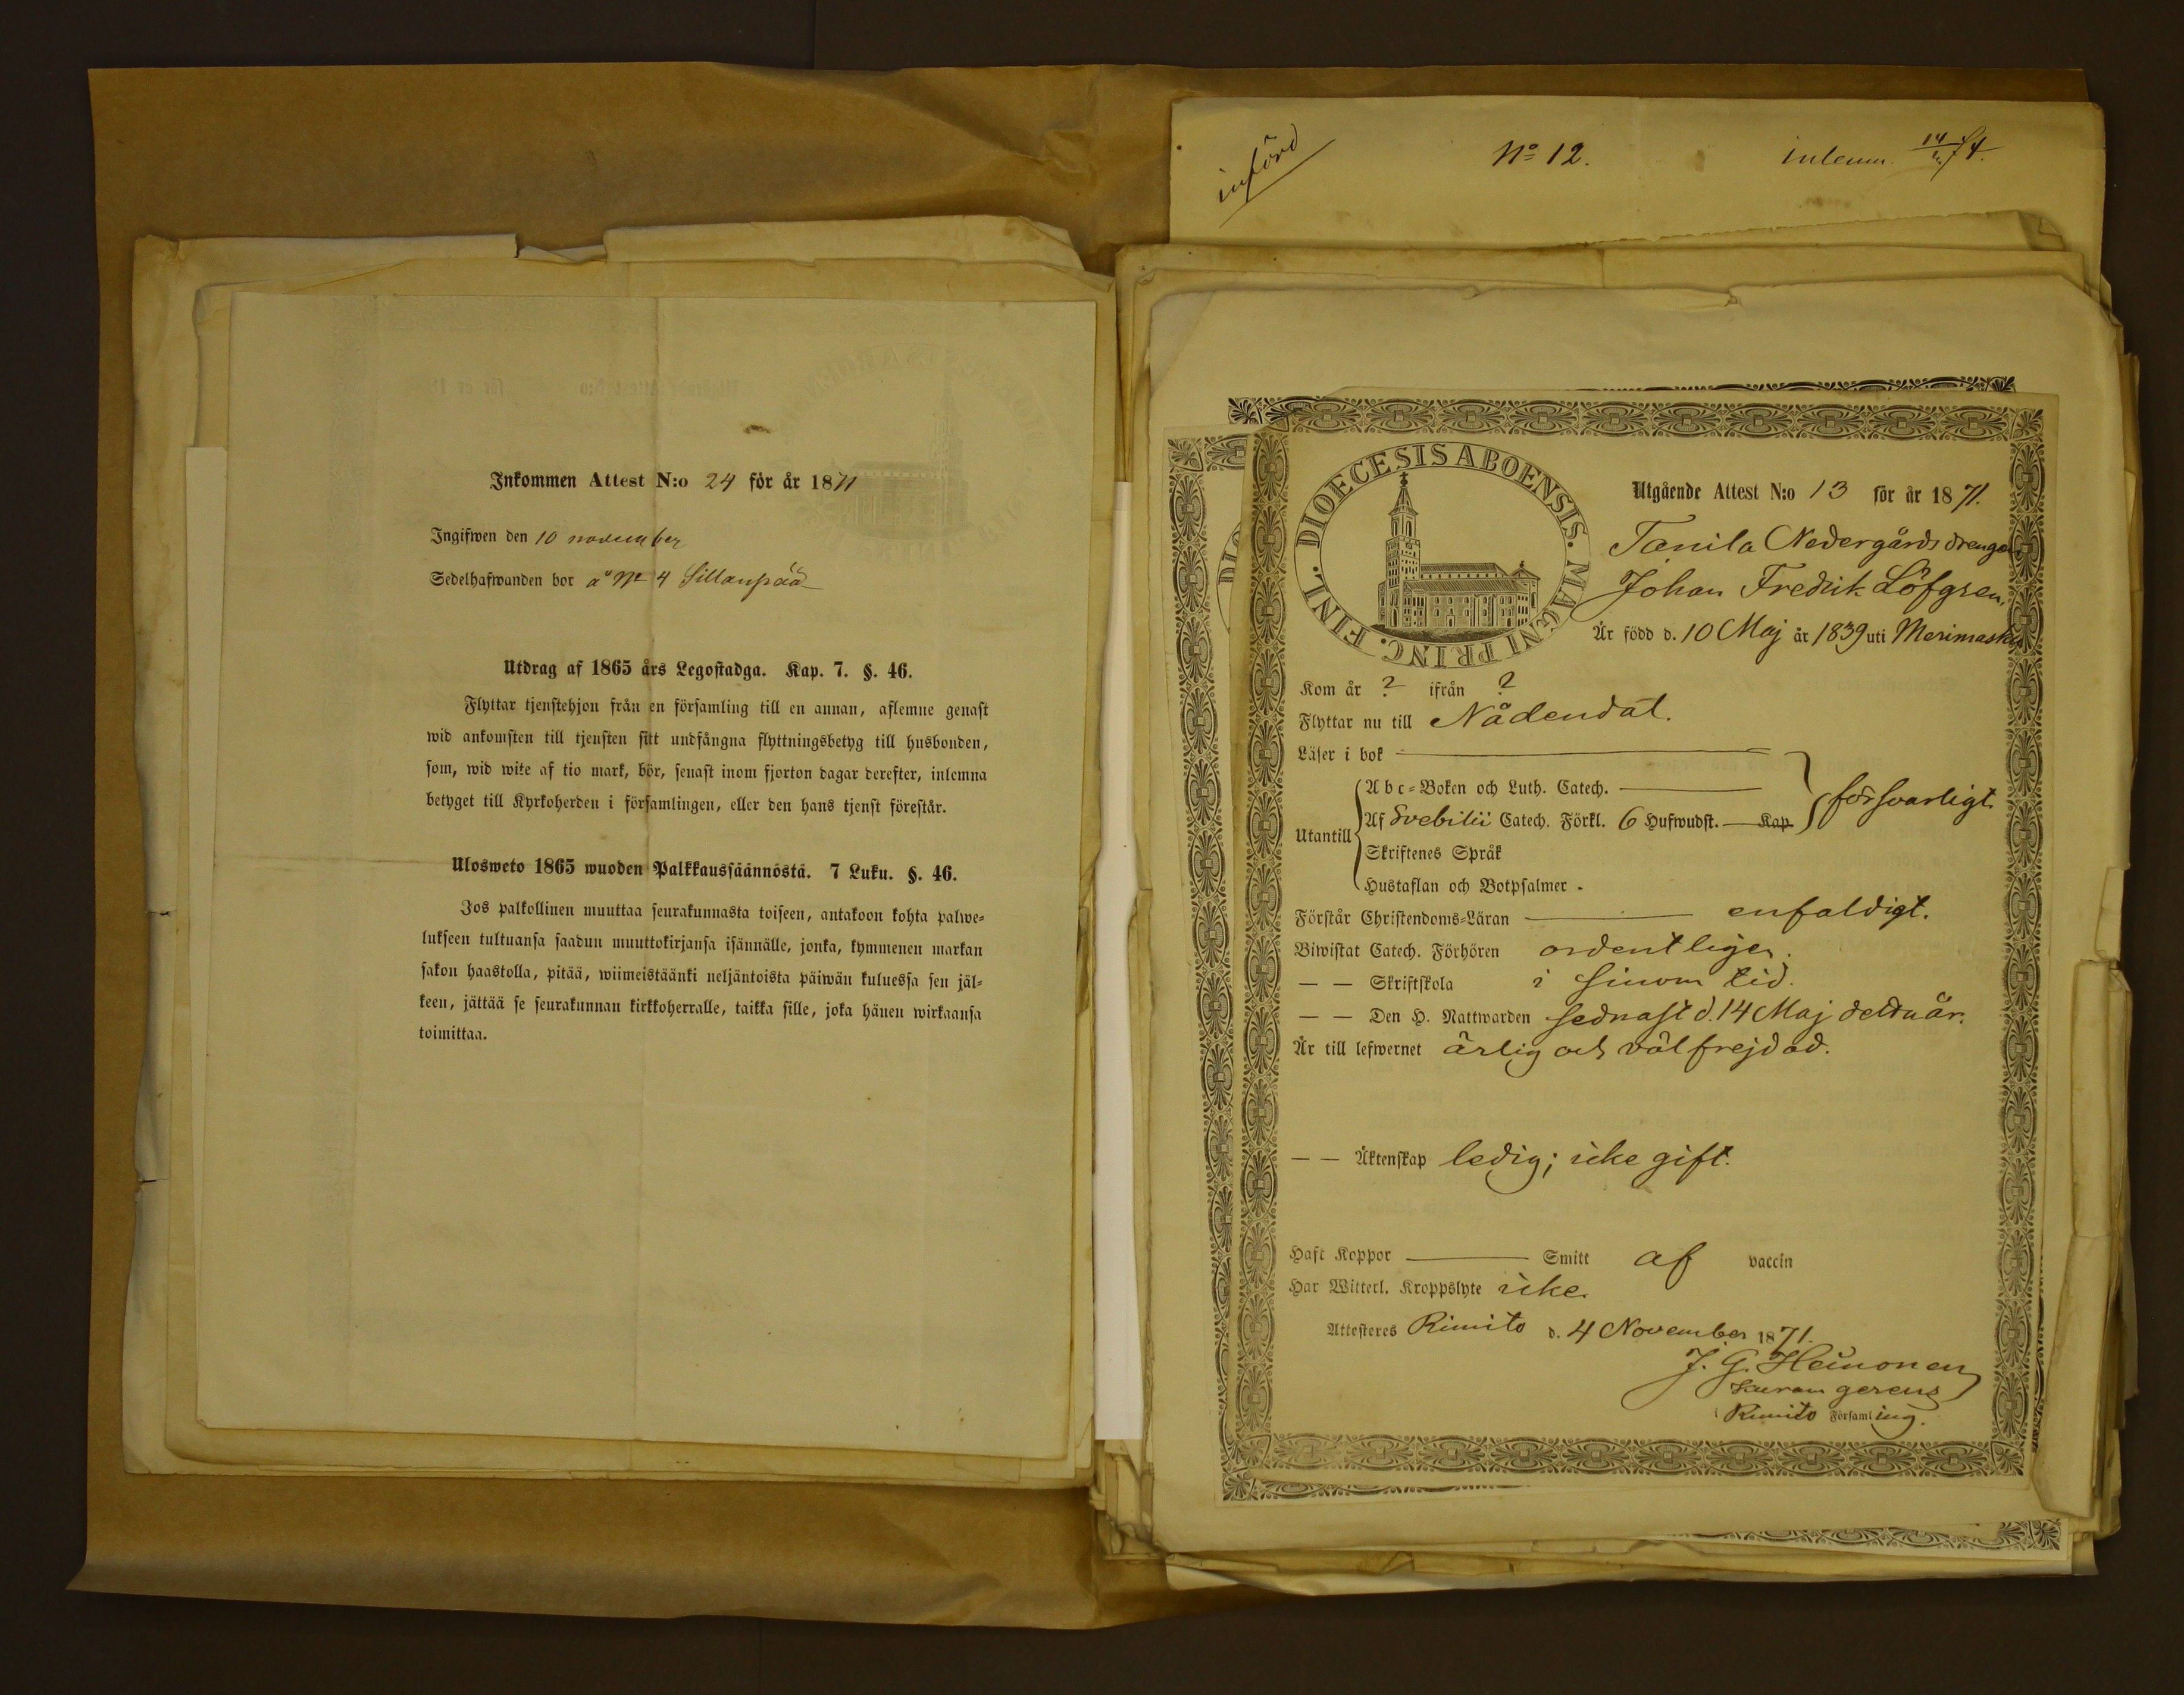 Inkommen Attest N:o 24 för år 1871
Ingifwen den 10 november
Sedelhafwanden bor å No 4 Sillanpää
Utdrag af 1865 års Legostadga. Kap. 7. §. 46.
Flyttar tjenstehjon från en församling till en annan, aflemne genast
wid ankomsten till tjensten sitt undfångna flyttningsbetyg till husbonden,
som, wid wite af tio mark, bör, senast inom fjorton dagar derefter, inlemna
betyget till Kyrkoherden i församlingen, eller den hans tjenst förestår.
Ulosweto 1865 wuoden Palkkaussäännöstä. 7 Luku. §. 46.
Jos palkollinen muuttaa seurakunnasta toiseen, antakoon kohta palwe-
lukseen tultuansa saadun muuttokirjansa isännälle, jonka, kymmenen markan
sakon haastolla, pitää, wiimeistäänki neljäntoista päiwän kuluessa sen jäl-
keen, jättää se seurakunnan kirkkoherralle, taikka sille, joka hänen wirkaansa
toimittaa.
införd
No 12.
inlemn. 14
DIOECESIS ABOENSIS. MAGNI PRINC. FINL.
Utgående Attest N:o 13 för år 1871.
Tanila Nedergårds drengen
Johan Fredrik Löfgren,
Är född d. 10 Maj år 1839 uti Merimasku
Kom år ? ifrån ?
Flyttar nu till Nådendal.
Läser i bok
Utantill
Abc-Boken och Luth. Catech.
Af Svebilii Catech. Förkl. 6 Hufwudst. Kap
försvarligt.
Skriftenes Språk
Hustaflan och Botpsalmer
Förstår Christendoms-Läran enfaldigt.
Biwistat Catech. Förhören ordentligen.
— — Skriftskola i sinom tid.
— — Den H. Nattwarden sednast d. 14 Maj detta år.
Är till lefwernet ärlig och välfrejdad.
— — Äktenskap ledig; icke gift.
Haft Koppor Smitt af vaccin
Har Witterl. Kroppslyte icke.
Attesteres Rimito d. 4 November 1871.
J. G. Heinonen
kuram gerens
i Rimito Församling.